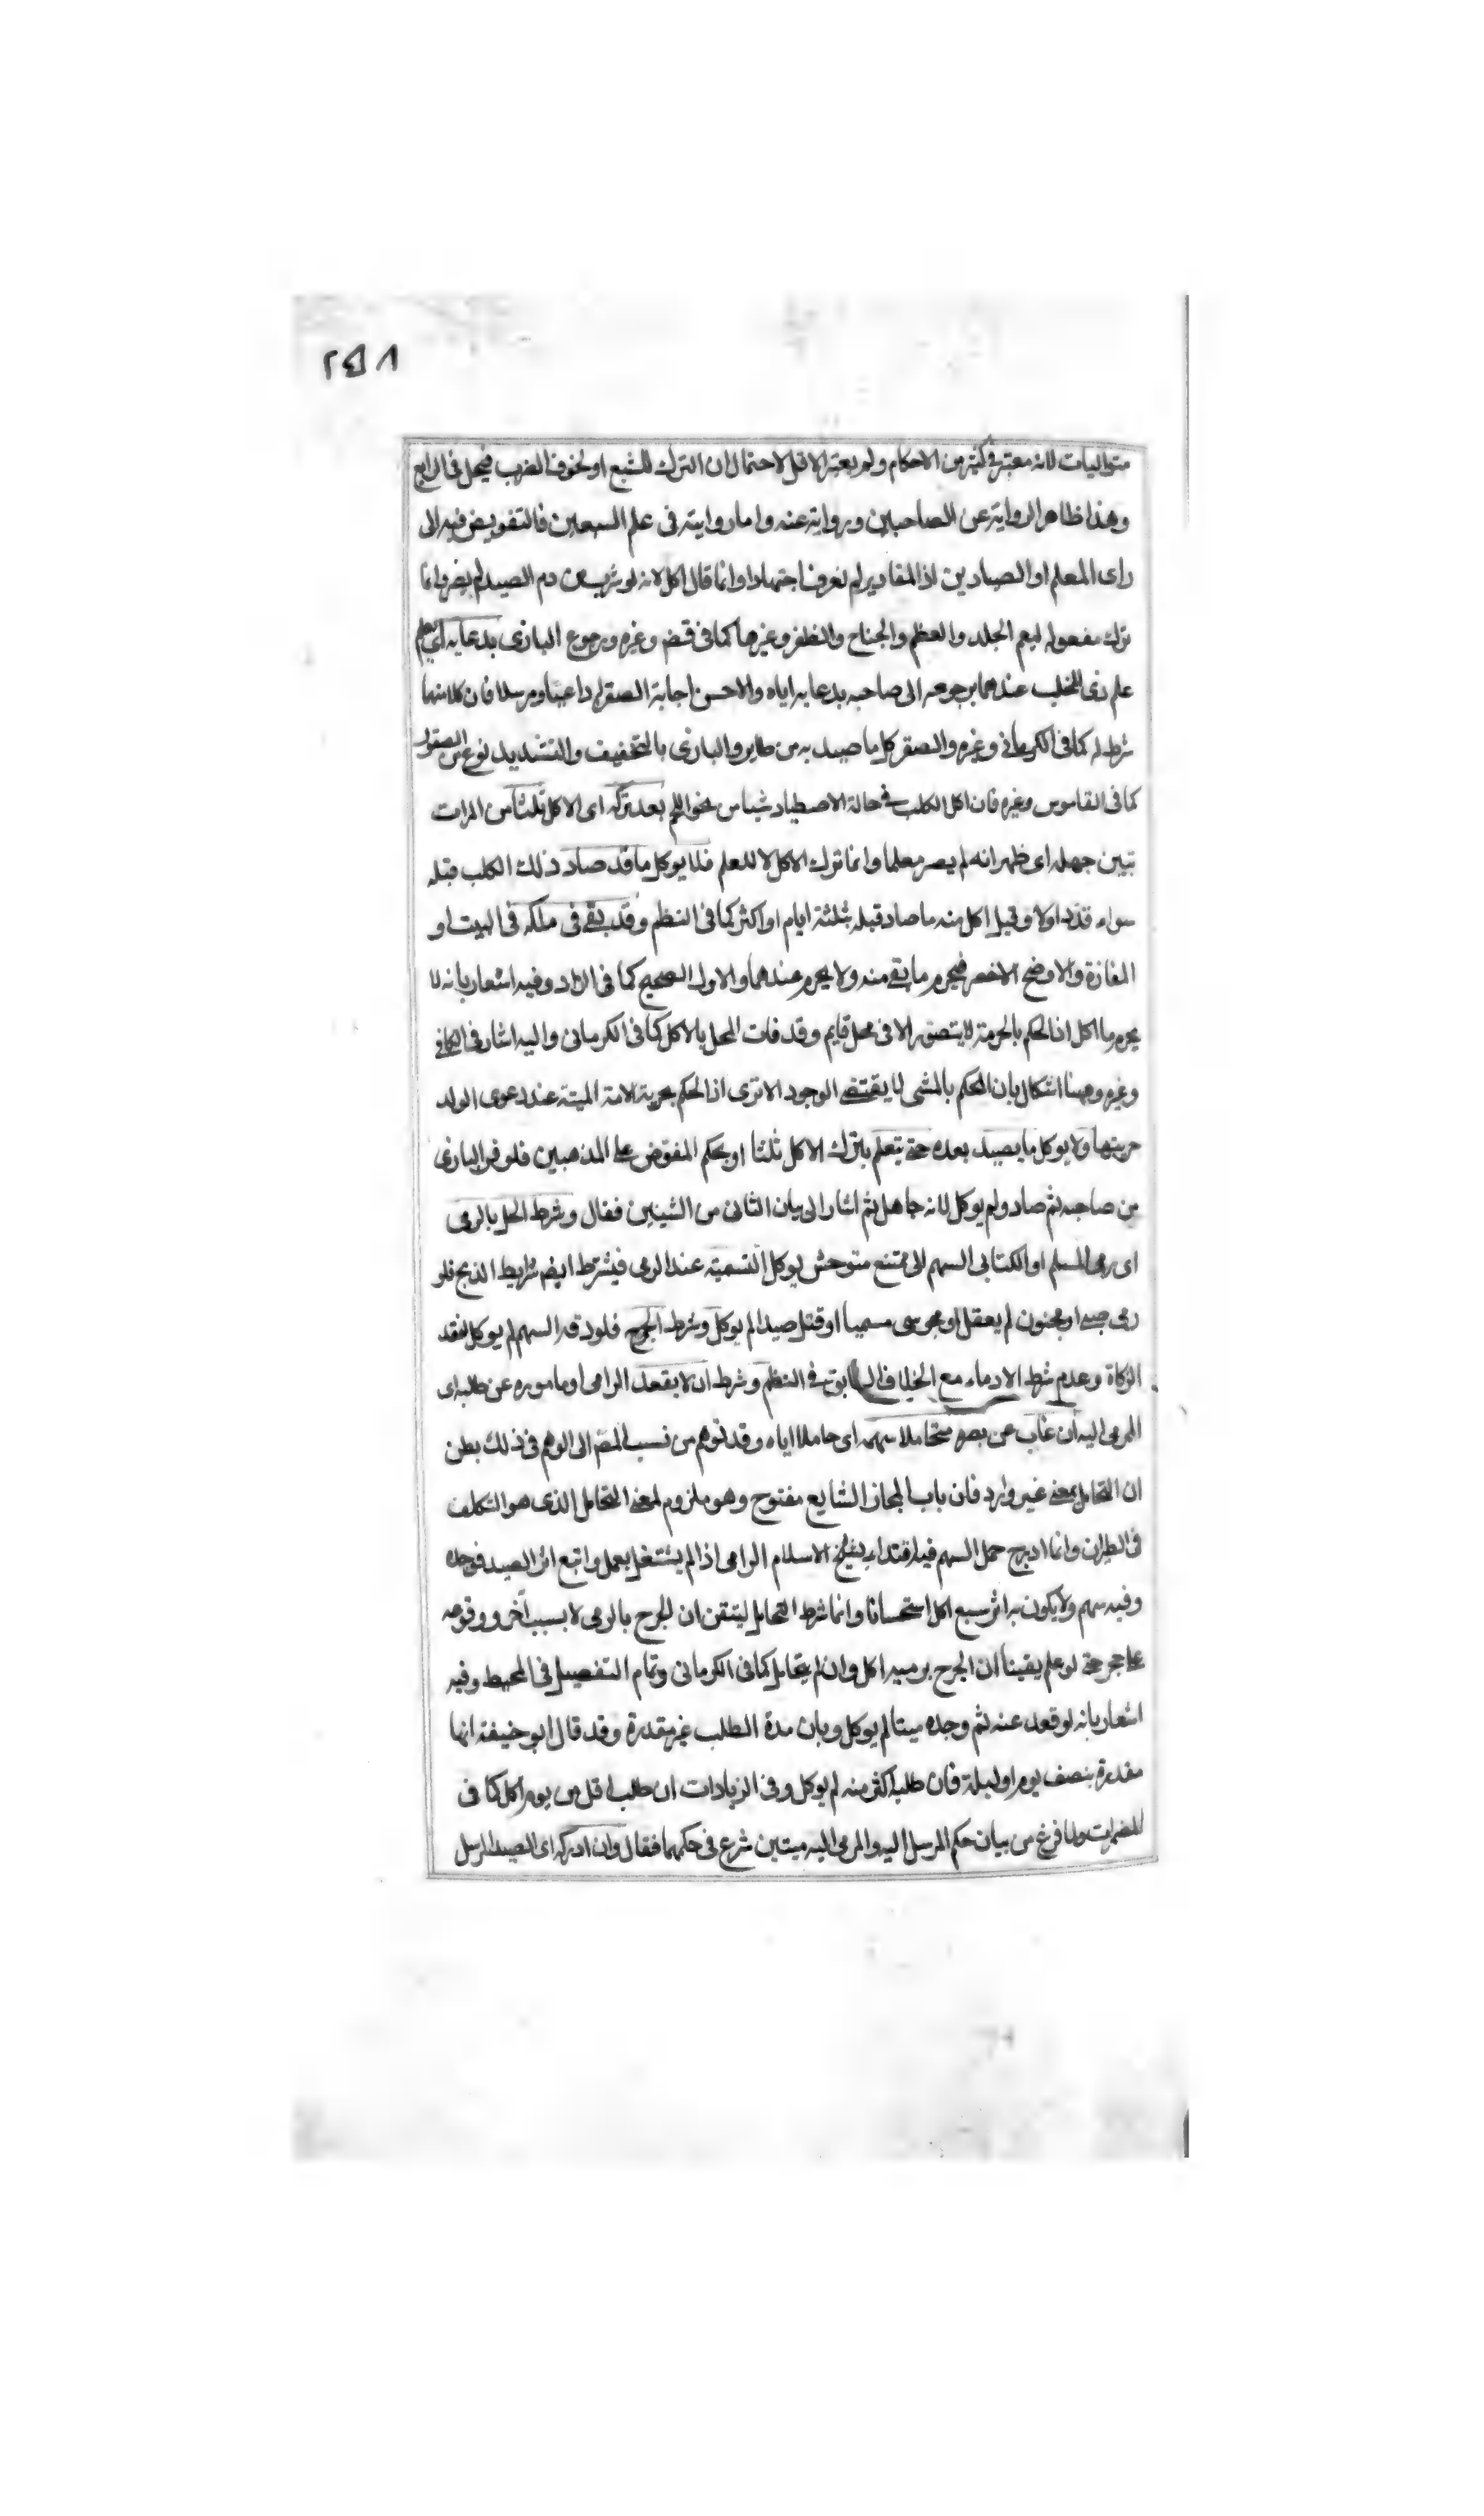 ٢٥٨
متواليات لانه معتبر في كثير من الاحكام ولم يعتبر الاقل لاحتمال ان الترك للشبع او لخوف الضرب فيحل في الرابع
وهذا ظاهر الرواية عن الصاحبين ورواية عنه واما روايته في علم السبعين فالتفويض فيه الى
راى المعلم او الصيادين اذ المقادير لم تعرف اجتهادا وانما قال اكل لانه لو شرب من دم الصيد لم يضر وانما
ترك مفعوله ليعم الجلد والعظم والجناح والظفر وغيرها كما في قض وغيره ورجوع البازى بدعايه اى يعلم
علم ذى المخلب عندهما برجوعه الى صاحبه بدعايه اياه والاحسن اجابة الصقر داعيا ومرسلا فان كلا منهما
شرط له كما في الكرماني وغيره والصقر كل ما صيد به من طاير والبازى بالتخفيف والتشديد نوع من الصقور
كما في القاموس وغيره فان اكل الكلب في حالة الاصطياد شيا من نحو اللحم بعد تركه اى الاكل ثلثا من المرات
تبين جهله اى ظهر انه لم يصر معلما وانما ترك الاكل لا للعلم فلا يوكل ما قد صاد ذلك الكلب قبله
سواء قدد اولا وقيل اكل منه ما صاد قبله بثلثة ايام او اكثر كما في النظم وقد بقى في ملكه في البيت او
المفازة والاوضح الاخصر فيحرم ما بقى منه ولا يحرم عندهما والاول الصحيح كما في الزاد وفيه اشعار بانه لا
يحرم ما اكل اذ الحكم بالحرمة لا يتصور الا في محل قايم وقد فات المحل بالاكل كما في الكرماني واليه اشار في الكافي
وغيره وههنا اشكال بان الحكم بالشى لا يقتضى الوجود الا ترى اذ الحكم بحرية الامة الميتة عند دعوى الولد
حريتها ولا يوكل ما يصيد بعده حتى يتعلم بترك الاكل ثلثا او بحكم المفوض على المذهبين فلو فر البازى
من صاحبه ثم صاد ولم يوكل لانه جاهل ثم اشار الى بيان الثانى من الشيئين فقال وشرط الحل بالرمى
اى رمى المسلم او الكتابى السهم الى ممتنع متوحش يوكل التسمية عند الرمى فيشترط ايضم شرايط الذبح فلو
رمى صبى او مجنون لم يعقل او مجوسى مسميا او قتل صيدا لم يوكل وشرط الجرح فلو دقه السهم لم يوكل لفقد
الزكاة وعدم شرط الادماء مع الخلاف السابق في النظم وشرط ان لا يقعد الرامى او ماموره عن طلبه اى
المرمى اليه ان غاب عن بصره متحاملا سهمه اى حاملا اياه وقد توهم من نسب المص الى الوهم في ذلك بظن
ان التحامل بمعنى غير وارد فان باب المجاز الشايع مفتوح وهو ملزوم لمعنى التحامل الذى هو التكلف
في الطيران وانما ادرج حمل السهم فيه اقتداء بشيخ الاسلام الرامى اذا لم يشتغل بعمل واتبع اثر الصيد فوجده
وفيه سهم ولا يكون به اثر سبع اكل استحسانا وانما شرط التحامل ليتقن ان الجرح بالرمى لا بسبب آخر ووقوعه
على حجر حتى لو علم يقينا ان الجرح برميه اكل وان لم يتحامل كما في الكرماني وتمام التفصيل في المحيط وفيه
اشعار بانه لو قعد عنه ثم وجده ميتا لم يوكل وبان مدة الطلب غير مقدرة وقد قال ابو حنيفة انها
مقدرة بنصف يوم او ليلة فان طلبه اكثر منه لم يوكل وفى الزيادات ان طلب اقل من يوم اكل كما في
المضمرات ولما فرغ من بيان حكم المرسل اليه والمرمى اليه ميتين شرع في حكمهما فقال وان ادركه اى الصيد المرسل